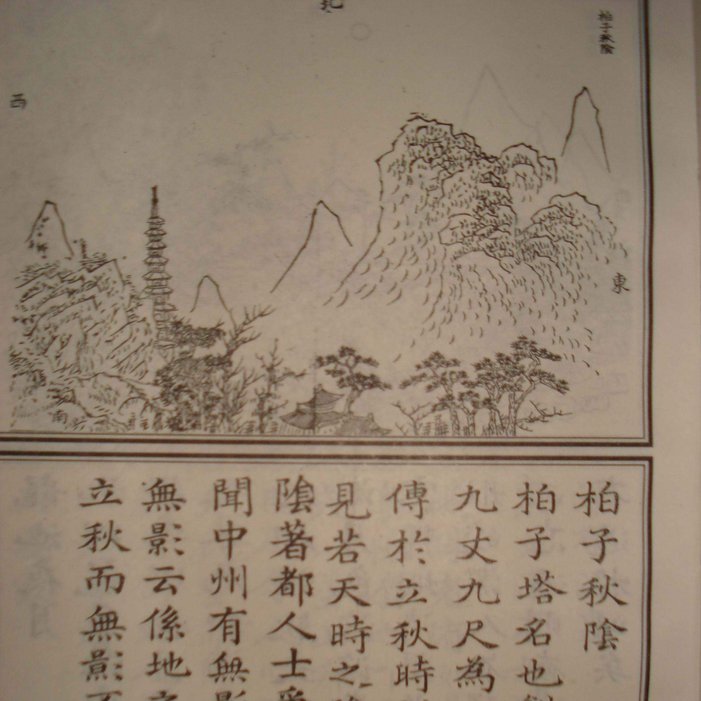 柏子秋陰
北
西
東
南
柏子秋陰
柏子塔名也
九丈九尺為
傳於立秋時
見若天時之
陰著都人士
聞中州有無影
無影云係地
立秋而無影